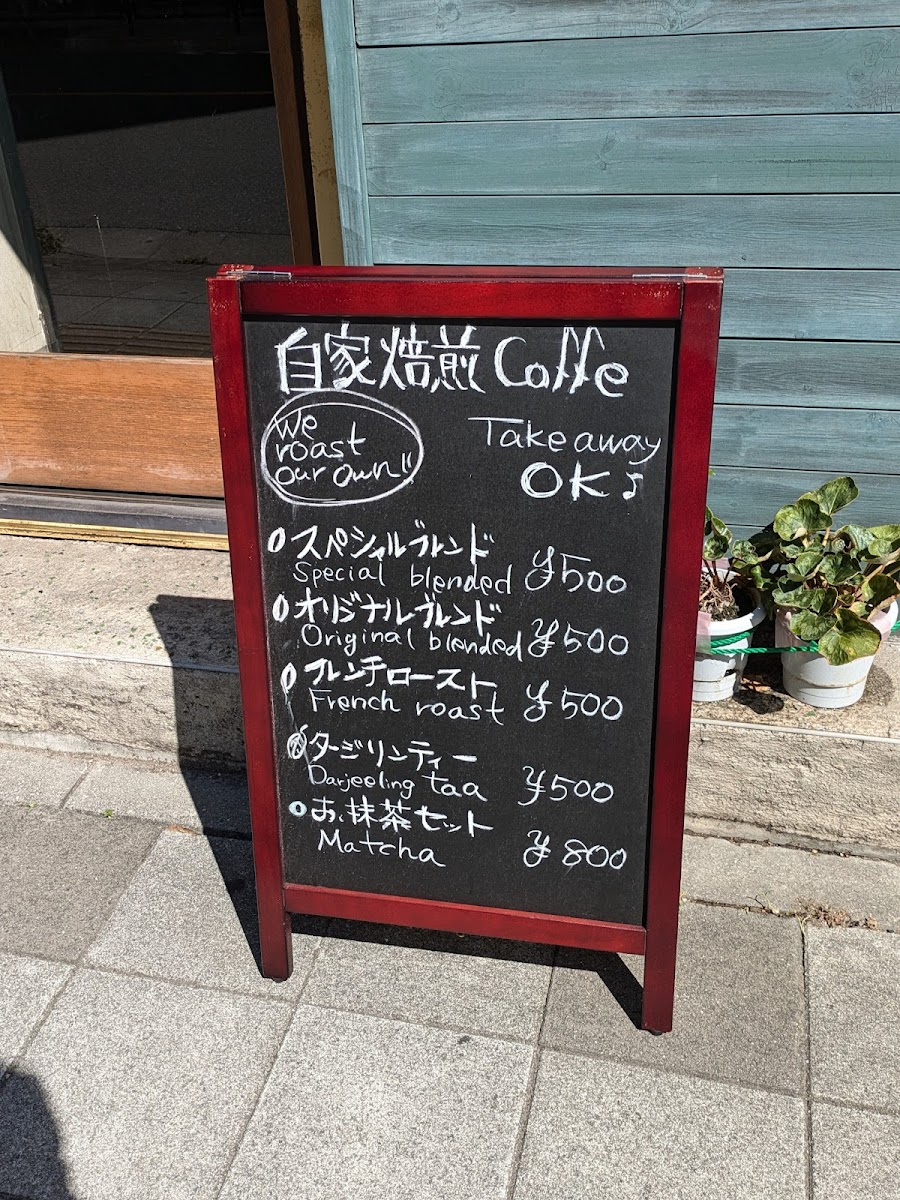 自家焙煎 Coffe
We
roast
our own"
Takeaway
OK♪
スペシャルブレンド
Special blended ¥500
オリジナルブレンド
Original blended ¥500
フレンチロースト
French roast ¥500
ダージリンティー
Darjeeling taa ¥500
お抹茶セット
Matcha ¥800